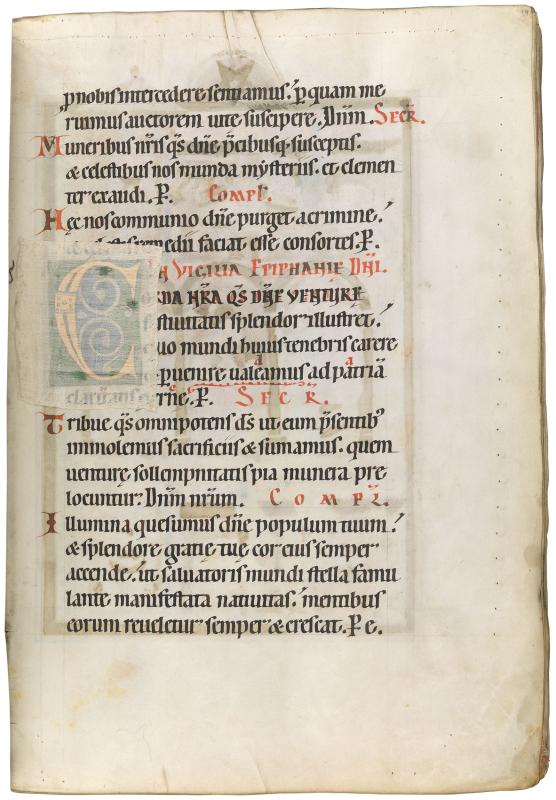 p nobis intercedere sentiamus. p quam me
ruimus auctorem uite suscipere. Dnm. SECR.
Muneribus nris qs dne pcibusq; susceptis.
& celestibus nos munda mysteriis. et clemen
ter exaudi. P. COMPL.
Hec nos communio dne purget a crimine.
medii faciat esse consortes. P.
N VIGILIA EPIPHANIE DNI.
C RDA NRA QS DNE VENTURE
stiuitatis splendor illustret.
quo mundi huius tenebris carere
puenire ualeamus ad patria
rne. P. SECR.
Tribue qs omnipotens ds ut eum psentib;
immolemus sacrificiis & sumamus. quem
uenture sollempnitatis pia munera pre
locuntur. Dnm nrum. COMPL.
Illumina quesumus dne populum tuum.
& splendore gratie tue cor eius semper
accende. ut saluatoris mundi stella famu
lante manifestata natiuitas. mentibus
eorum reueletur semper & crescat. P e.